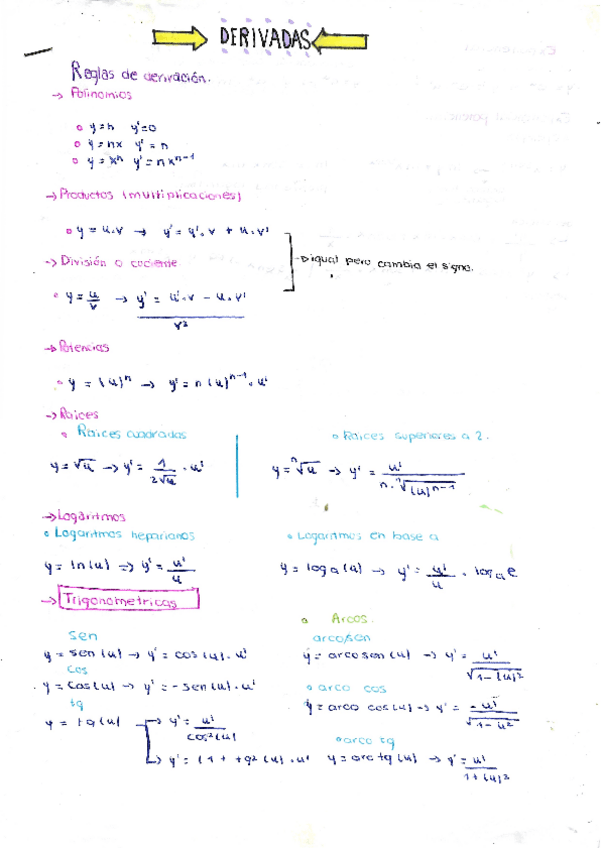 DERIVADAS
Reglas de derivación.
→ Polinomios
y=n y'=0
y=nx y'=n
y=xⁿ y'=nxⁿ⁻¹
→ Productos (multiplicaciones)
y=u.v → y'=u'.v + u.v'
→ igual pero cambia el signo.
→ División o cociente
y=u/v → y'= u'.v - u.v' / v²
→ Potencias
y=(u)ⁿ → y'=n(u)ⁿ⁻¹.u'
→ Raices
Raices cuadradas
y=√u → y'= 1/2√u . u'
Raices superiores a 2.
y=ⁿ√u → y'= u' / n.ⁿ√(u)ⁿ⁻¹
→ Logaritmos
Logaritmos neperianos
y=ln(u) → y'= u'/u
Logaritmos en base a
y=logₐ(u) → y'= u'/u . logₐe
→ Trigonometricas
sen
y=sen(u) → y'=cos(u).u'
cos
y=cos(u) → y'=-sen(u).u'
tg
y=tg(u) → y'= u'/cos²(u)
→ y'=(1+tg²(u).u'
Arcos.
arcosen
y=arcosen(u) → y'= u'/√1-(u)²
arco cos
y=arco cos(u) → y'= -u'/√1-u²
arco tg
y=arc tg(u) → y'= u'/1+(u)²